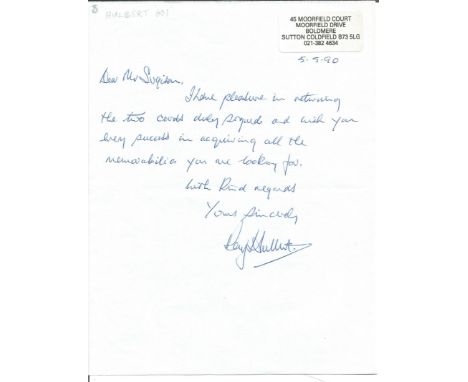 HULBERT (W)
45 MOORFIELD COURT
MOORFIELD DRIVE
BOLDMERE
SUTTON COLDFIELD B73 5LG
021-382 4634
5.9.90
Dear Mr
I have pleasure in returning
the two cards duly signed and wish you
every success in acquiring all the
memorabilia you are looking for.
With Kind regards
Yours Sincerely